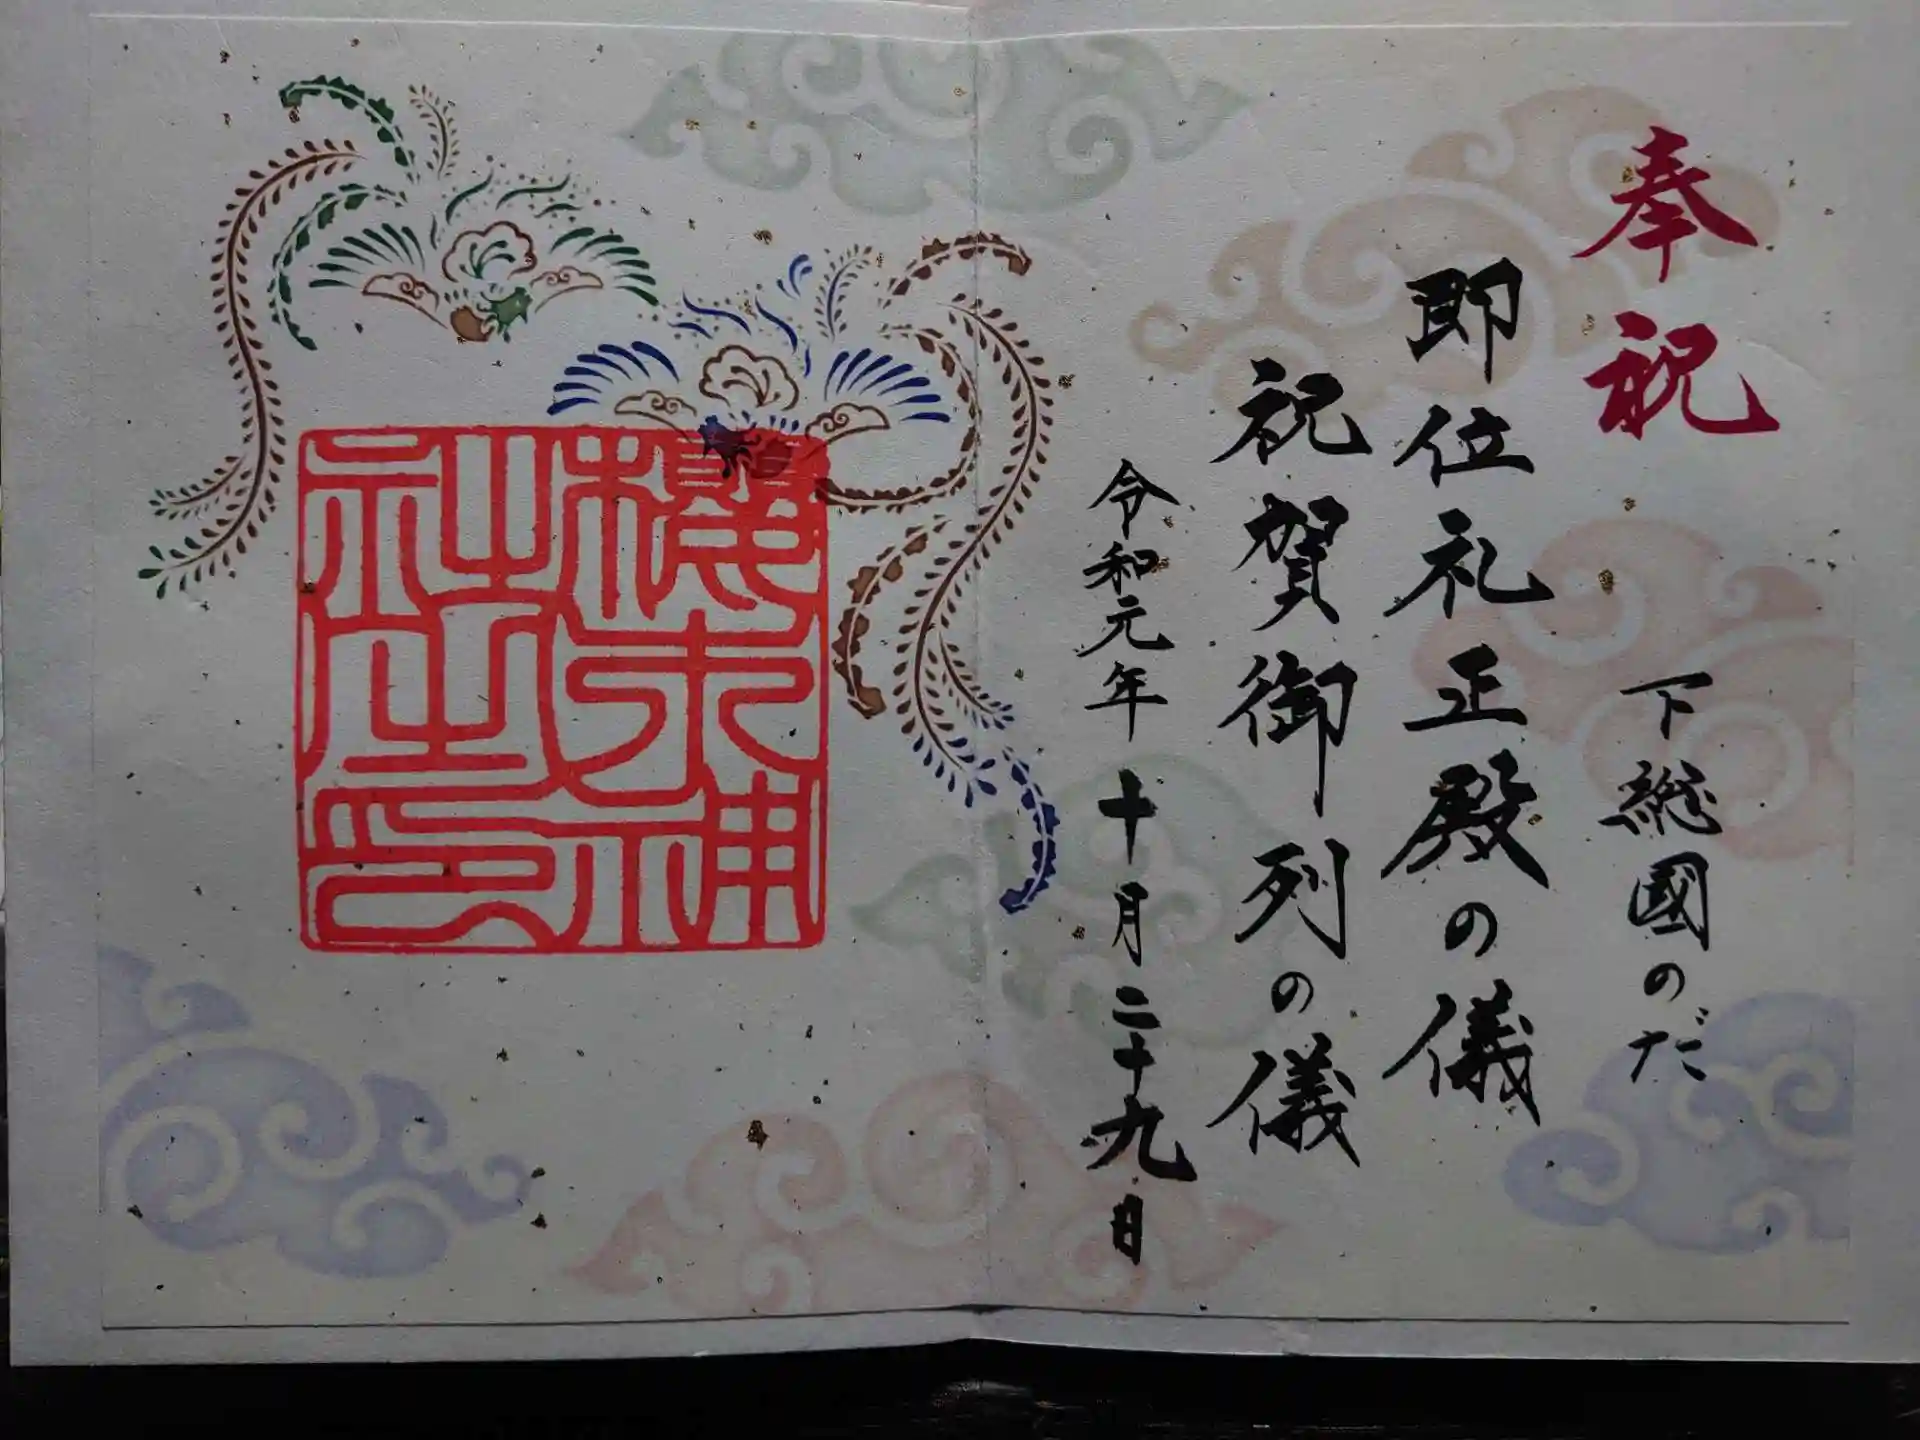 奉祝
下総國のだ
即位礼正殿の儀
祝賀御列の儀
令和元年十月二十九日
櫻木神
社之印